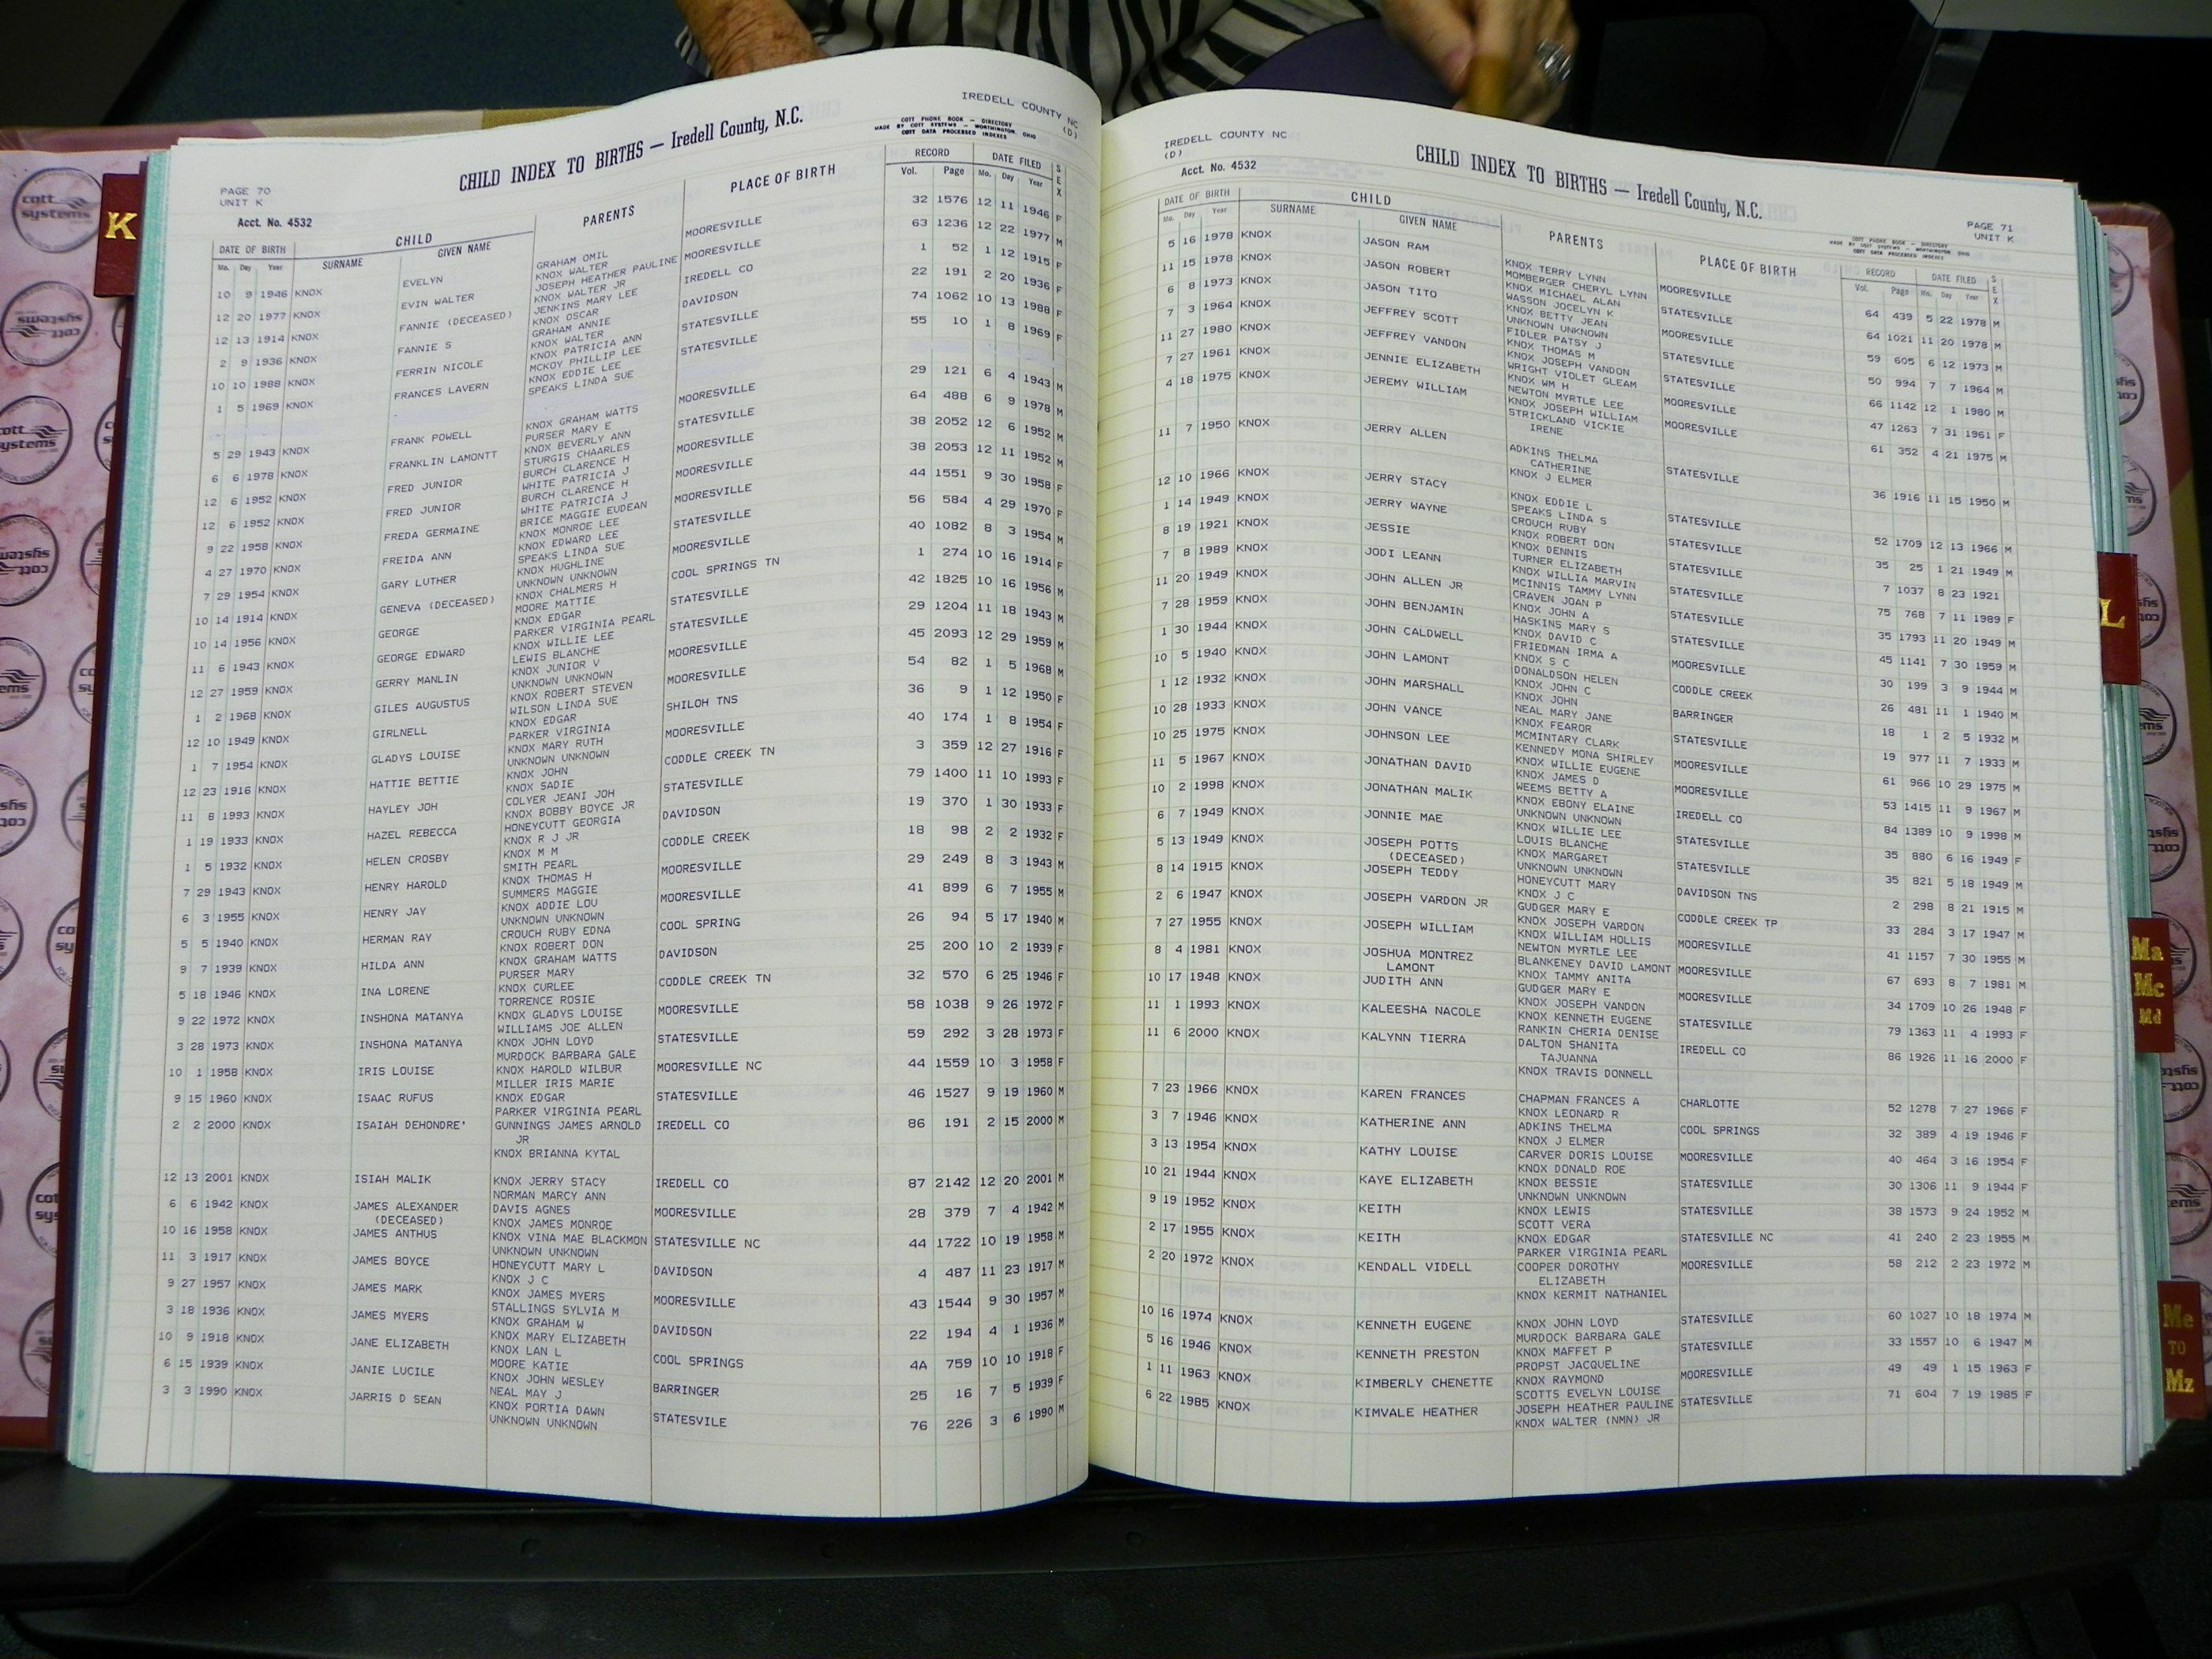 IREDELL COUNTY NC
(D)
COTT PHONE BOOK — DIRECTORY
MADE BY COTT SYSTEMS — WORTHINGTON, OHIO
COTT DATA PROCESSED INDEXES
CHILD INDEX TO BIRTHS — Iredell County, N.C.
PAGE 70
UNIT K
Acct. No. 4532
DATE OF BIRTH CHILD PARENTS PLACE OF BIRTH RECORD DATE FILED SEX
Mo. Day Year SURNAME GIVEN NAME Vol. Page Mo. Day Year
10 9 1946 KNOX EVELYN GRAHAM OMIL MOORESVILLE 32 1576 12 11 1946 F
KNOX WALTER
12 20 1977 KNOX EVIN WALTER JOSEPH HEATHER PAULINE MOORESVILLE 63 1236 12 22 1977 M
KNOX WALTER JR
12 13 1914 KNOX FANNIE (DECEASED) JENKINS MARY LEE IREDELL CO 1 52 1 12 1915 F
KNOX OSCAR
2 9 1936 KNOX FANNIE S GRAHAM ANNIE DAVIDSON 22 191 2 20 1936 F
KNOX WALTER
10 10 1988 KNOX FERRIN NICOLE KNOX PATRICIA ANN STATESVILLE 74 1062 10 13 1988 F
MCKOY PHILLIP LEE
1 5 1969 KNOX FRANCES LAVERN KNOX EDDIE LEE STATESVILLE 55 10 1 8 1969 F
SPEAKS LINDA SUE
5 29 1943 KNOX FRANK POWELL KNOX GRAHAM WATTS MOORESVILLE 29 121 6 4 1943 M
PURSER MARY E
6 6 1978 KNOX FRANKLIN LAMONTT KNOX BEVERLY ANN STATESVILLE 64 488 6 9 1978 M
STURGIS CHAARLES
12 6 1952 KNOX FRED JUNIOR BURCH CLARENCE H MOORESVILLE 38 2052 12 6 1952 M
WHITE PATRICIA J
12 6 1952 KNOX FRED JUNIOR BURCH CLARENCE H MOORESVILLE 38 2053 12 11 1952 M
WHITE PATRICIA J
9 22 1958 KNOX FREDA GERMAINE BRICE MAGGIE EUDEAN MOORESVILLE 44 1551 9 30 1958 F
KNOX MONROE LEE
4 27 1970 KNOX FREIDA ANN KNOX EDWARD LEE STATESVILLE 56 584 4 29 1970 F
SPEAKS LINDA SUE
7 29 1954 KNOX GARY LUTHER KNOX HUGHLINE MOORESVILLE 40 1082 8 3 1954 M
UNKNOWN UNKNOWN
10 14 1914 KNOX GENEVA (DECEASED) KNOX CHALMERS H COOL SPRINGS TN 1 274 10 16 1914 F
MOORE MATTIE
10 14 1956 KNOX GEORGE KNOX EDGAR STATESVILLE 42 1825 10 16 1956 M
PARKER VIRGINIA PEARL
11 6 1943 KNOX GEORGE EDWARD KNOX WILLIE LEE STATESVILLE 29 1204 11 18 1943 M
LEWIS BLANCHE
12 27 1959 KNOX GERRY MANLIN KNOX JUNIOR V MOORESVILLE 45 2093 12 29 1959 M
UNKNOWN UNKNOWN
1 2 1968 KNOX GILES AUGUSTUS KNOX ROBERT STEVEN MOORESVILLE 54 82 1 5 1968 M
WILSON LINDA SUE
12 10 1949 KNOX GIRLNELL KNOX EDGAR SHILOH TNS 36 9 1 12 1950 F
PARKER VIRGINIA
1 7 1954 KNOX GLADYS LOUISE KNOX MARY RUTH MOORESVILLE 40 174 1 8 1954 F
UNKNOWN UNKNOWN
12 23 1916 KNOX HATTIE BETTIE KNOX JOHN CODDLE CREEK TN 3 359 12 27 1916 F
KNOX SADIE
11 8 1993 KNOX HAYLEY JOH COLYER JEANI JOH STATESVILLE 79 1400 11 10 1993 F
KNOX BOBBY BOYCE JR
1 19 1933 KNOX HAZEL REBECCA HONEYCUTT GEORGIA DAVIDSON 19 370 1 30 1933 F
KNOX R J JR
1 5 1932 KNOX HELEN CROSBY KNOX M M CODDLE CREEK 18 98 2 2 1932 F
SMITH PEARL
7 29 1943 KNOX HENRY HAROLD KNOX THOMAS H MOORESVILLE 29 249 8 3 1943 M
SUMMERS MAGGIE
6 3 1955 KNOX HENRY JAY KNOX ADDIE LOU MOORESVILLE 41 899 6 7 1955 M
UNKNOWN UNKNOWN
5 5 1940 KNOX HERMAN RAY CROUCH RUBY EDNA COOL SPRING 26 94 5 17 1940 M
KNOX ROBERT DON
9 7 1939 KNOX HILDA ANN KNOX GRAHAM WATTS DAVIDSON 25 200 10 2 1939 F
PURSER MARY
5 18 1946 KNOX INA LORENE KNOX CURLEE CODDLE CREEK TN 32 570 6 25 1946 F
TORRENCE ROSIE
9 22 1972 KNOX INSHONA MATANYA KNOX GLADYS LOUISE MOORESVILLE 58 1038 9 26 1972 F
WILLIAMS JOE ALLEN
3 28 1973 KNOX INSHONA MATANYA KNOX JOHN LOYD STATESVILLE 59 292 3 28 1973 F
MURDOCK BARBARA GALE
10 1 1958 KNOX IRIS LOUISE KNOX HAROLD WILBUR MOORESVILLE NC 44 1559 10 3 1958 F
MILLER IRIS MARIE
9 15 1960 KNOX ISAAC RUFUS KNOX EDGAR STATESVILLE 46 1527 9 19 1960 M
PARKER VIRGINIA PEARL
2 2 2000 KNOX ISAIAH DEHONDRE' GUNNINGS JAMES ARNOLD IREDELL CO 86 191 2 15 2000 M
JR
KNOX BRIANNA KYTAL
12 13 2001 KNOX ISIAH MALIK KNOX JERRY STACY IREDELL CO 87 2142 12 20 2001 M
NORMAN MARCY ANN
6 6 1942 KNOX JAMES ALEXANDER DAVIS AGNES MOORESVILLE 28 379 7 4 1942 M
(DECEASED) KNOX JAMES MONROE
10 16 1958 KNOX JAMES ANTHUS KNOX VINA MAE BLACKMON STATESVILLE NC 44 1722 10 19 1958 M
UNKNOWN UNKNOWN
11 3 1917 KNOX JAMES BOYCE HONEYCUTT MARY L DAVIDSON 4 487 11 23 1917 M
KNOX J C
9 27 1957 KNOX JAMES MARK KNOX JAMES MYERS MOORESVILLE 43 1544 9 30 1957 M
STALLINGS SYLVIA M
3 18 1936 KNOX JAMES MYERS KNOX GRAHAM W DAVIDSON 22 194 4 1 1936 M
KNOX MARY ELIZABETH
10 9 1918 KNOX JANE ELIZABETH KNOX LAN L COOL SPRINGS 4A 759 10 10 1918 F
MOORE KATIE
6 15 1939 KNOX JANIE LUCILE KNOX JOHN WESLEY BARRINGER 25 16 7 5 1939 F
NEAL MAY J
3 3 1990 KNOX JARRIS D SEAN KNOX PORTIA DAWN STATESVILE 76 226 3 6 1990 M
UNKNOWN UNKNOWN
IREDELL COUNTY NC
(D)
Acct. No. 4532
CHILD INDEX TO BIRTHS — Iredell County, N.C.
PAGE 71
UNIT K
COTT PHONE BOOK — DIRECTORY
MADE BY COTT SYSTEMS — WORTHINGTON, OHIO
COTT DATA PROCESSED INDEXES
DATE OF BIRTH CHILD PARENTS PLACE OF BIRTH RECORD DATE FILED SEX
Mo. Day Year SURNAME GIVEN NAME Vol. Page Mo. Day Year
5 16 1978 KNOX JASON RAM KNOX TERRY LYNN MOORESVILLE 64 439 5 22 1978 M
MOMBERGER CHERYL LYNN
11 15 1978 KNOX JASON ROBERT KNOX MICHAEL ALAN STATESVILLE 64 1021 11 20 1978 M
WASSON JOCELYN K
6 8 1973 KNOX JASON TITO KNOX BETTY JEAN MOORESVILLE 59 605 6 12 1973 M
UNKNOWN UNKNOWN
7 3 1964 KNOX JEFFREY SCOTT FIDLER PATSY J STATESVILLE 50 994 7 7 1964 M
KNOX THOMAS M
11 27 1980 KNOX JEFFREY VANDON KNOX JOSEPH VANDON STATESVILLE 66 1142 12 1 1980 M
WRIGHT VIOLET GLEAM
7 27 1961 KNOX JENNIE ELIZABETH KNOX WM H MOORESVILLE 47 1263 7 31 1961 F
NEWTON MYRTLE LEE
4 18 1975 KNOX JEREMY WILLIAM KNOX JOSEPH WILLIAM MOORESVILLE 61 352 4 21 1975 M
STRICKLAND VICKIE
IRENE
11 7 1950 KNOX JERRY ALLEN ADKINS THELMA STATESVILLE 36 1916 11 15 1950 M
CATHERINE
KNOX J ELMER
12 10 1966 KNOX JERRY STACY KNOX EDDIE L STATESVILLE 52 1709 12 13 1966 M
SPEAKS LINDA S
1 14 1949 KNOX JERRY WAYNE CROUCH RUBY STATESVILLE 35 25 1 21 1949 M
KNOX ROBERT DON
8 19 1921 KNOX JESSIE KNOX DENNIS STATESVILLE 7 1037 8 23 1921
TURNER ELIZABETH
7 8 1989 KNOX JODI LEANN KNOX WILLIA MARVIN STATESVILLE 75 768 7 11 1989 F
MCINNIS TAMMY LYNN
11 20 1949 KNOX JOHN ALLEN JR CRAVEN JOAN P STATESVILLE 35 1793 11 20 1949 M
KNOX JOHN A
7 28 1959 KNOX JOHN BENJAMIN HASKINS MARY S MOORESVILLE 45 1141 7 30 1959 M
KNOX DAVID C
1 30 1944 KNOX JOHN CALDWELL FRIEDMAN IRMA A CODDLE CREEK 30 199 3 9 1944 M
KNOX S C
10 5 1940 KNOX JOHN LAMONT DONALDSON HELEN BARRINGER 26 481 11 1 1940 M
KNOX JOHN C
1 12 1932 KNOX JOHN MARSHALL KNOX JOHN STATESVILLE 18 1 2 5 1932 M
NEAL MARY JANE
10 28 1933 KNOX JOHN VANCE KNOX FEAROR MOORESVILLE 19 977 11 7 1933 M
MCMINTARY CLARK
10 25 1975 KNOX JOHNSON LEE KENNEDY MONA SHIRLEY MOORESVILLE 61 966 10 29 1975 M
KNOX WILLIE EUGENE
11 5 1967 KNOX JONATHAN DAVID KNOX JAMES D IREDELL CO 53 1415 11 9 1967 M
WEEMS BETTY A
10 2 1998 KNOX JONATHAN MALIK KNOX EBONY ELAINE STATESVILLE 84 1389 10 9 1998 M
UNKNOWN UNKNOWN
6 7 1949 KNOX JONNIE MAE KNOX WILLIE LEE STATESVILLE 35 880 6 16 1949 F
LOUIS BLANCHE
5 13 1949 KNOX JOSEPH POTTS KNOX MARGARET DAVIDSON TNS 35 821 5 18 1949 M
(DECEASED) UNKNOWN UNKNOWN
8 14 1915 KNOX JOSEPH TEDDY HONEYCUTT MARY CODDLE CREEK TP 2 298 8 21 1915 M
KNOX J C
2 6 1947 KNOX JOSEPH VARDON JR GUDGER MARY E MOORESVILLE 33 284 3 17 1947 M
KNOX JOSEPH VARDON
7 27 1955 KNOX JOSEPH WILLIAM KNOX WILLIAM HOLLIS MOORESVILLE 41 1157 7 30 1955 M
NEWTON MYRTLE LEE
8 4 1981 KNOX JOSHUA MONTREZ BLANKENEY DAVID LAMONT MOORESVILLE 67 693 8 7 1981 M
LAMONT KNOX TAMMY ANITA
10 17 1948 KNOX JUDITH ANN GUDGER MARY E MOORESVILLE 34 1709 10 26 1948 F
KNOX JOSEPH VANDON
11 1 1993 KNOX KALEESHA NACOLE KNOX KENNETH EUGENE STATESVILLE 79 1363 11 4 1993 F
RANKIN CHERIA DENISE
11 6 2000 KNOX KALYNN TIERRA DALTON SHANITA IREDELL CO 86 1926 11 16 2000 F
TAJUANNA
KNOX TRAVIS DONNELL
7 23 1966 KNOX KAREN FRANCES CHAPMAN FRANCES A CHARLOTTE 52 1278 7 27 1966 F
KNOX LEONARD R
3 7 1946 KNOX KATHERINE ANN ADKINS THELMA COOL SPRINGS 32 389 4 19 1946 F
KNOX J ELMER
3 13 1954 KNOX KATHY LOUISE CARVER DORIS LOUISE MOORESVILLE 40 464 3 16 1954 F
KNOX DONALD ROE
10 21 1944 KNOX KAYE ELIZABETH KNOX BESSIE STATESVILLE 30 1306 11 9 1944 F
UNKNOWN UNKNOWN
9 19 1952 KNOX KEITH KNOX LEWIS STATESVILLE 38 1573 9 24 1952 M
SCOTT VERA
2 17 1955 KNOX KEITH KNOX EDGAR STATESVILLE NC 41 240 2 23 1955 M
PARKER VIRGINIA PEARL
2 20 1972 KNOX KENDALL VIDELL COOPER DOROTHY MOORESVILLE 58 212 2 23 1972 M
ELIZABETH
KNOX KERMIT NATHANIEL
10 16 1974 KNOX KENNETH EUGENE KNOX JOHN LOYD STATESVILLE 60 1027 10 18 1974 M
MURDOCK BARBARA GALE
5 16 1946 KNOX KENNETH PRESTON KNOX MAFFET P STATESVILLE 33 1557 10 6 1947 M
PROPST JACQUELINE
1 11 1963 KNOX KIMBERLY CHENETTE KNOX RAYMOND MOORESVILLE 49 49 1 15 1963 F
SCOTTS EVELYN LOUISE
6 22 1985 KNOX KIMVALE HEATHER JOSEPH HEATHER PAULINE STATESVILLE 71 604 7 19 1985 F
KNOX WALTER (NMN) JR
K
L
Ma
Mc
Md
Me
TO
Mz
cott
systems